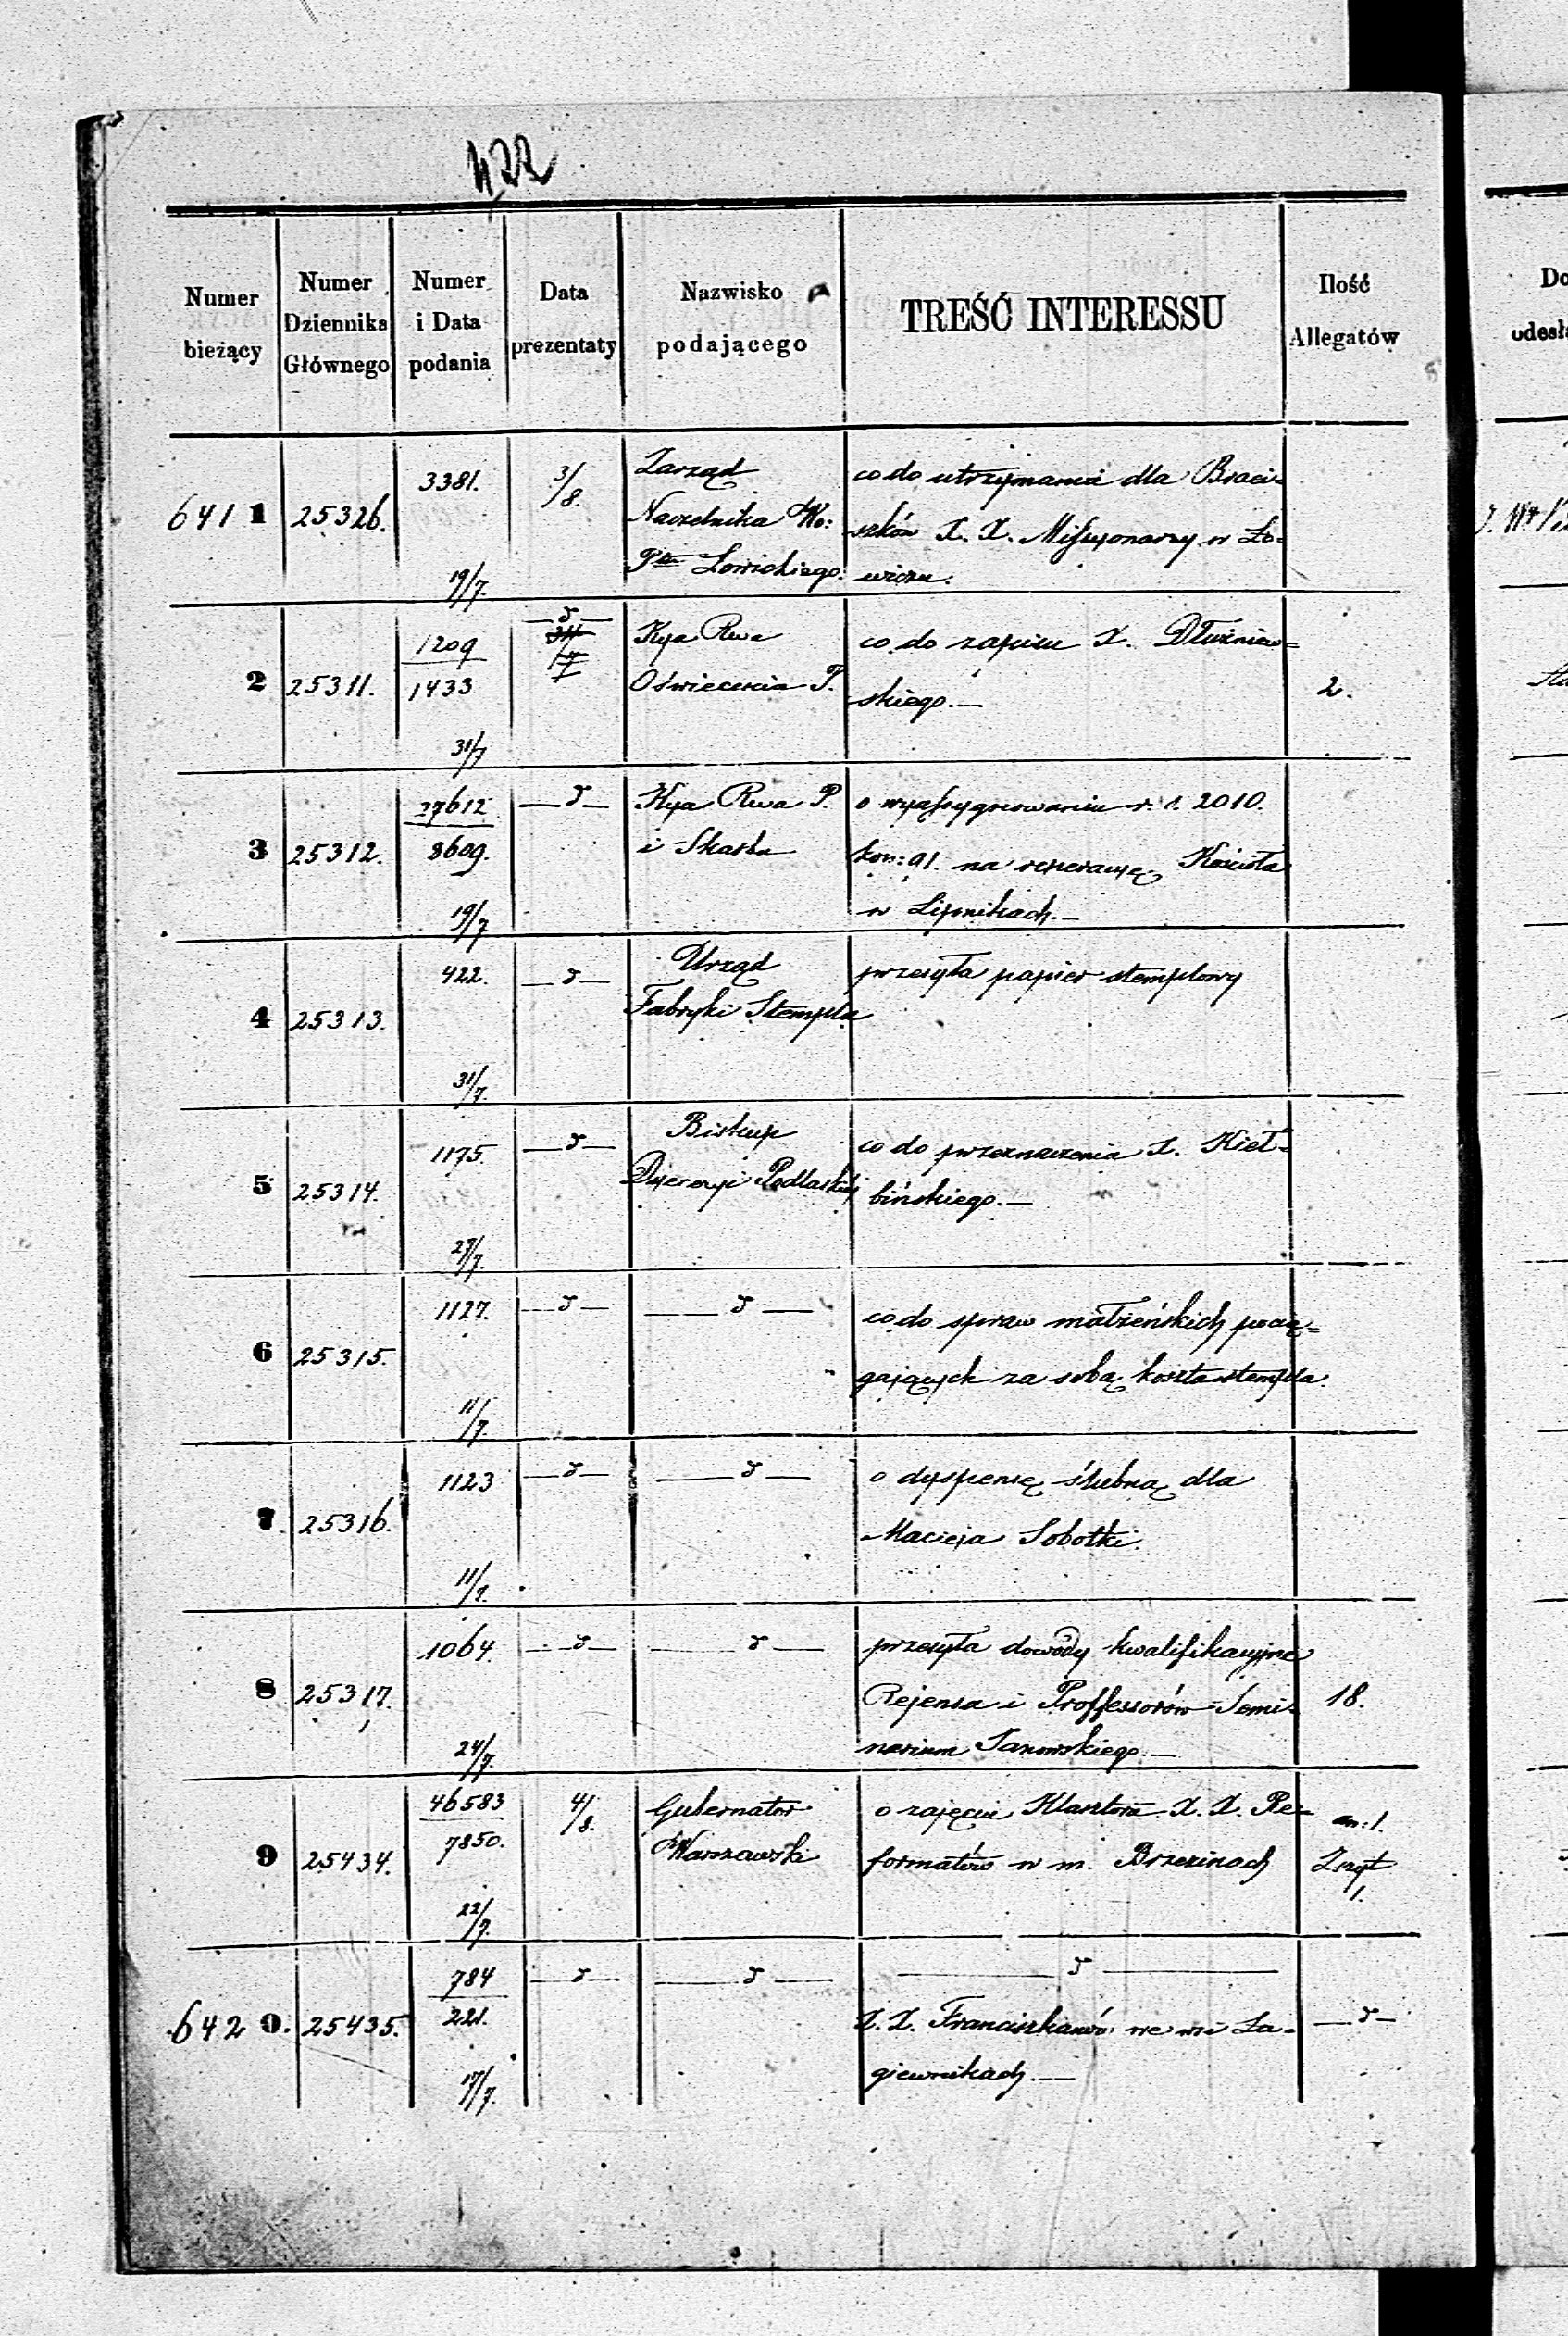 422
Numer bieżący
Numer Dziennika Głównego
Numer i Data podania
Data prezentaty
Nazwisko podającego
TREŚĆ INTERESSU
Ilość Allegatów
641 1 25326. 3381. 19/7. 3/8.
Zarząd
Naczelnika Wo:
Ptu Łowickiego.
co do utrzymania dla Braci-
szków X. X. Missyonarzy w Ło-
wiczu.
2 25311. 1209 1433 31/7 δ
Kyja Rwa
Oświecenia P.
co do zapisu X. Dłużniew-
skiego.—
2.
3 25312. 37612 8609. 19/7 —δ—
Kyja Rwa P.
i Skarbu
o wyassygnowaniu r. s. 2010.
kop: 91. na reperacyę Kościoła
w Lipnikach.—
4 25313. 422. 31/7. —δ—
Urząd
Fabryki Stempla
przesyła papier stemplowy
5 25314. 1175. 27/7. —δ—
Biskup
Dyecezyi Podlaskiej
co do przeznaczenia X. Kieł-
bińskiego.—
6 25315. 1127. 11/7. —δ— —δ—
co do spraw małżeńskich pocią-
gających za sobą koszta stempla.
7. 25316. 1123 11/7. —δ— —δ—
o dyspensę ślubną dla
Macieja Sobotki.
8 25317. 1064. 24/7. —δ— —δ—
przesyła dowody kwalifikacyjne
Rejensa i Proffessorów Semi-
narium Janowskiego.—
18.
9 25434. 46583 7850. 22/7. 4/8.
Gubernator
Warszawski
o zajęciu Klasztoru X. X. Re-
formatów w m. Brzezinach
an: 1.
Zszyt
1.
642 0. 25435. 784 221. 17/7. —δ— —δ— —δ—
X. X. Franciszkanów we wsi Ła-
giewnikach.—
—δ—
Do
odesł